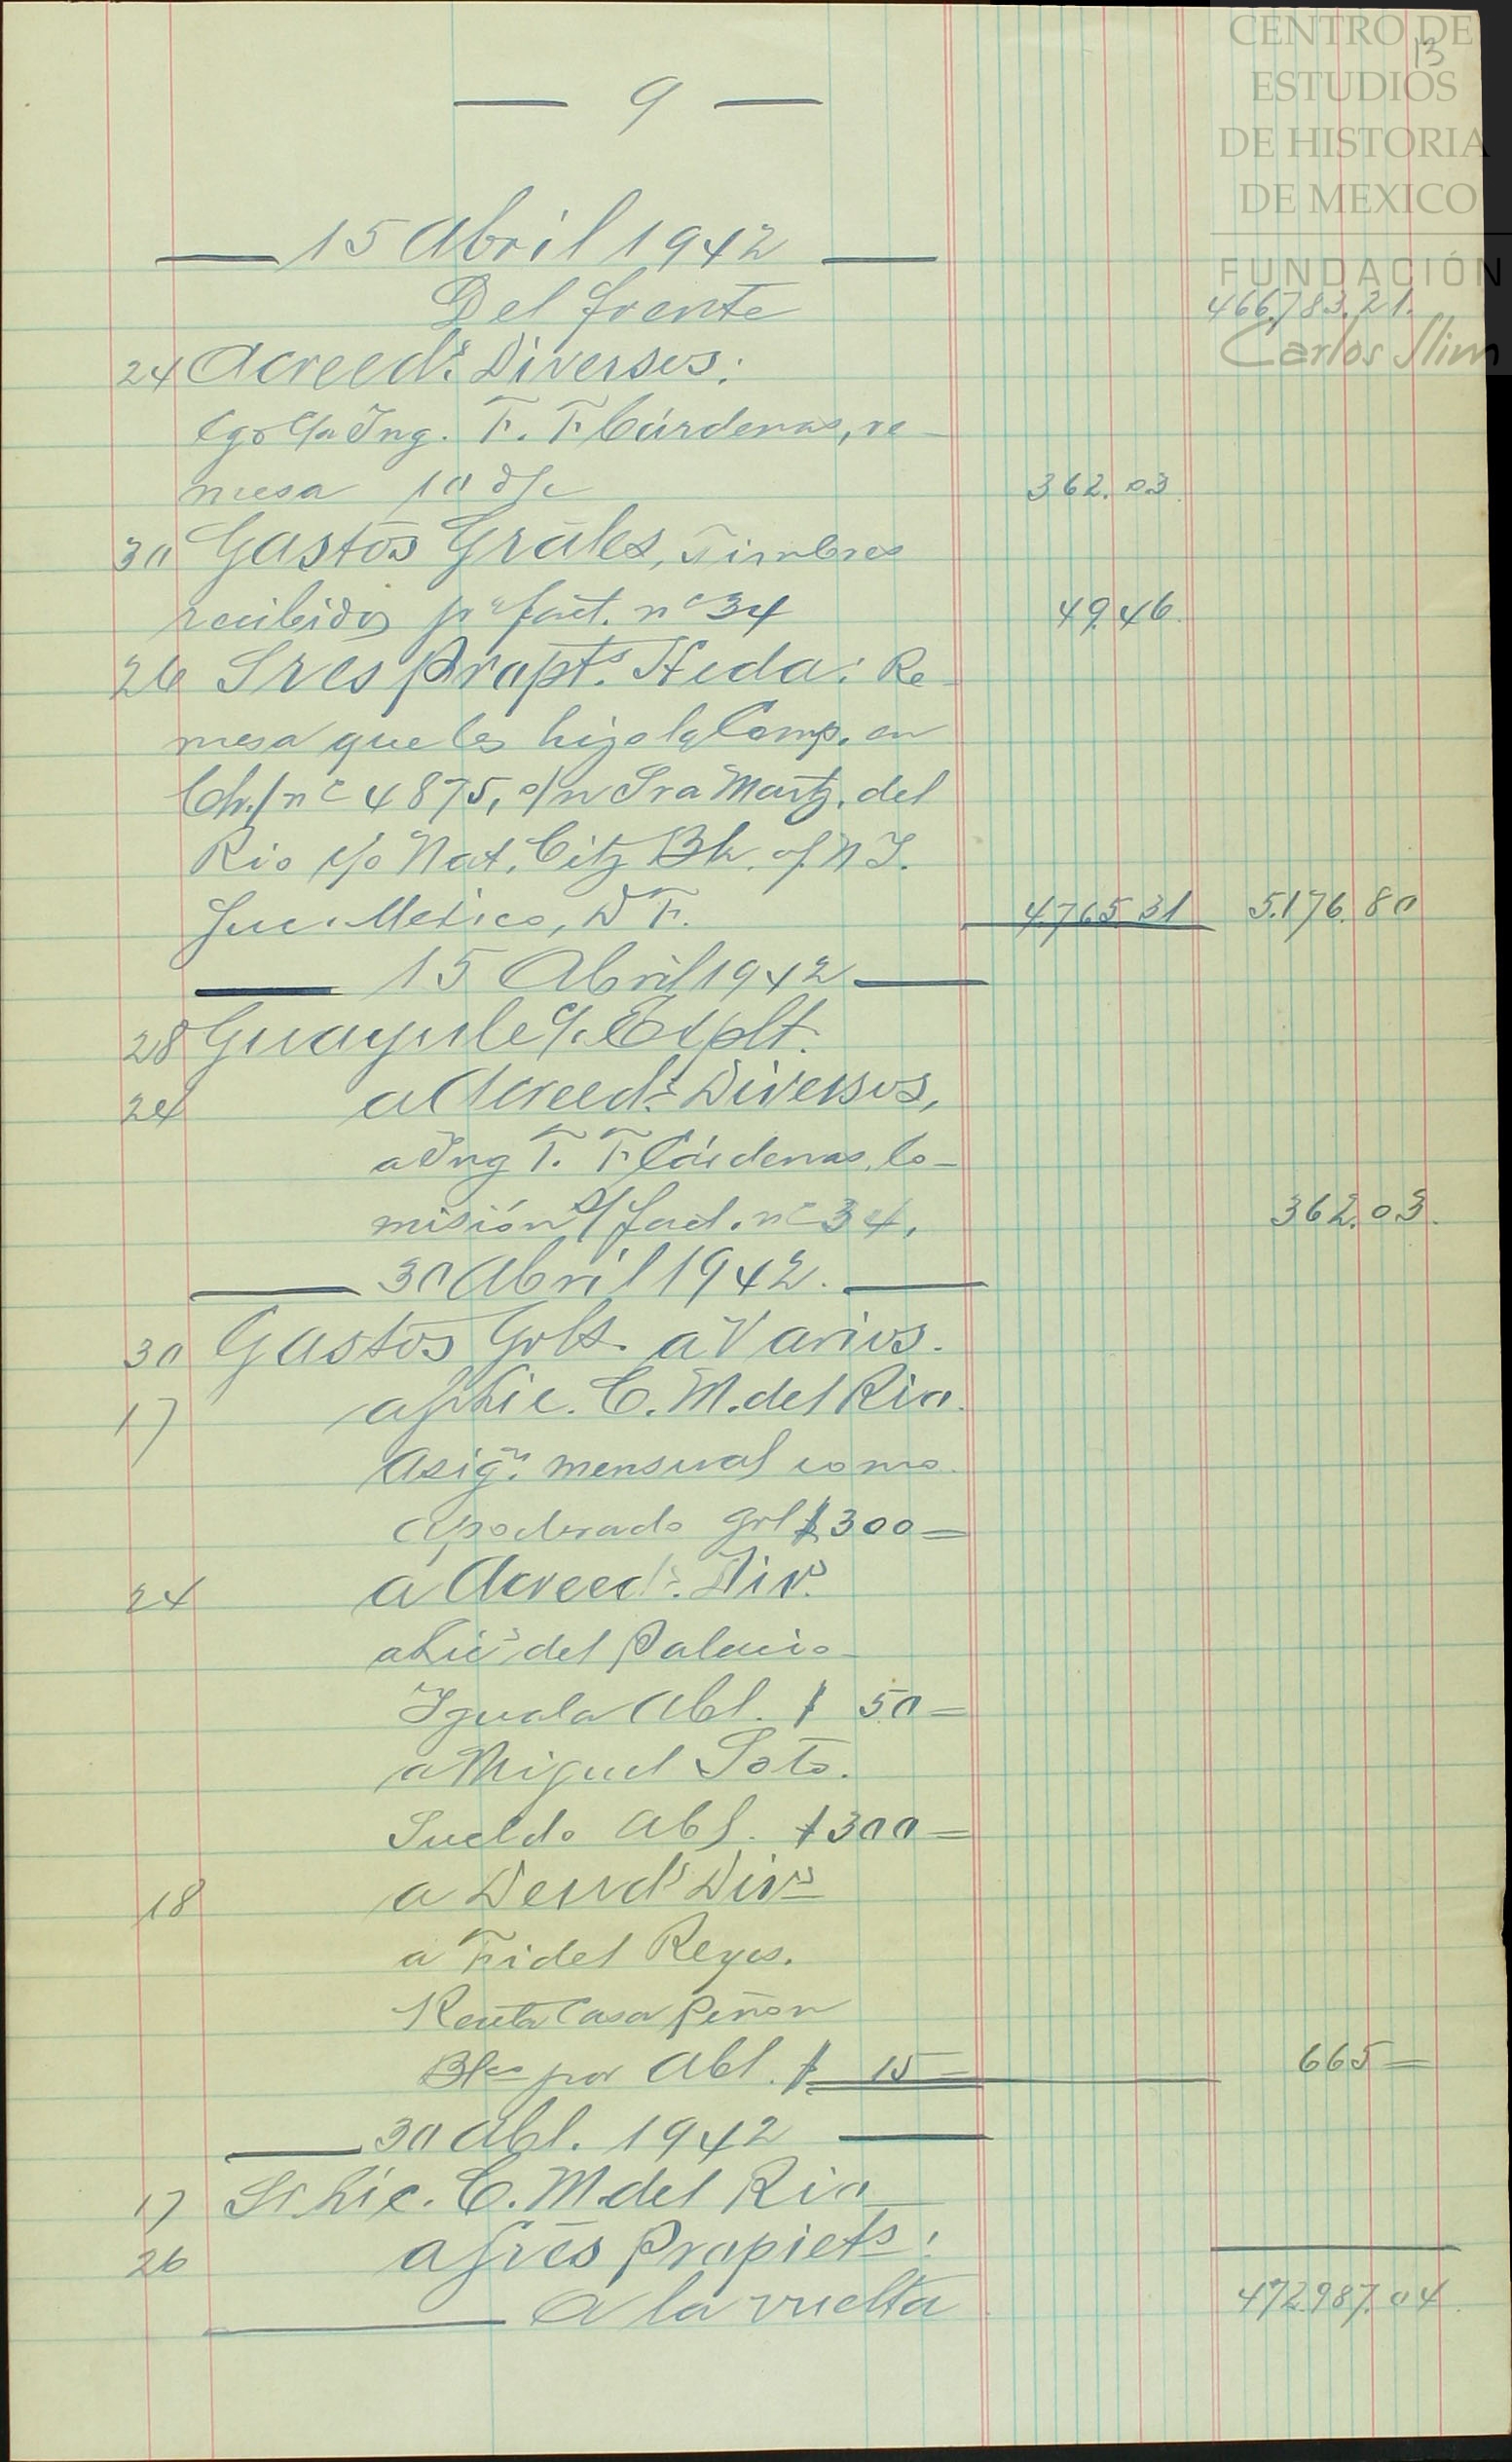 CENTRO DE
ESTUDIOS
DE HISTORIA
DE MEXICO
FUNDACIÓN
Carlos Slim
13
— 9 —
15 Abril 1942
Del frente 466,783.21.
24 Acreeds. Diversos:
Cgo c/a Ing. F. F. Cárdenas, re-
mesa 10 d/c 362.03
30 Gastos Gráles, Timbres
recibidos pr fact. nº 34 49.46
26 Sres Propts. Hcda: Re-
mesa que les hizo la Comp. en
Ch./ nº 4875, o/n Sra Martz. del
Rio c/o Nat. City Bk. of N.Y.
Suc. Mexico, D F. 4.765.31 5.176.80
15 Abril 1942
28 Guayule c/ Explt.
24 a Acreeds. Diversos,
a Ing F. F. Cárdenas, Co-
misión s/ fact. nº 34. 362.03.
30 Abril 1942.
30 Gastos Grls. a Varios.
17 a Sr Lic. C. M. del Rio.
Asign. mensual como
Apoderado Grl $300=
24 a Acreeds. Divs.
a Lic del Palacio
Iguala Abl. $ 50=
a Miguel Soto.
Sueldo Abl. $300=
18 a Deuds Divs
a Fidel Reyes.
Renta Casa Peñon
Blco por Abl. $ 15= 665=
30 Abl. 1942
17 Sr Lic. C. M. del Rio
26 a Srés Propiets:
A la vuelta 472.987.04